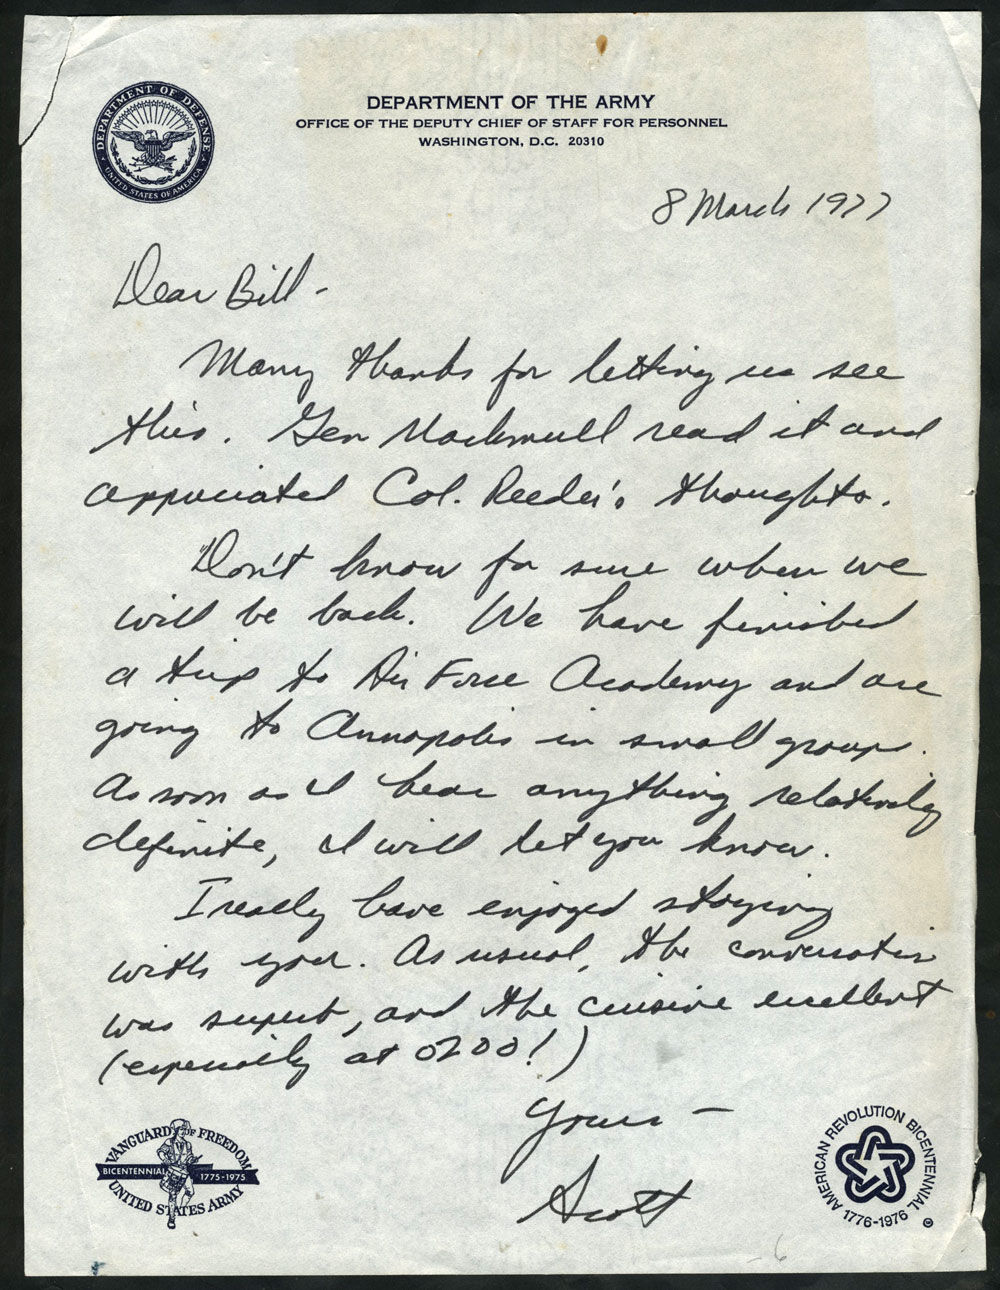 DEPARTMENT OF DEFENSE
UNITED STATES OF AMERICA
DEPARTMENT OF THE ARMY
OFFICE OF THE DEPUTY CHIEF OF STAFF FOR PERSONNEL
WASHINGTON, D.C. 20310
8 March 1977
Dear Bill -
Many thanks for letting us see
this. Gen Mackmull read it and
appreciated Col. Reeder's thoughts.
Don't know for sure when we
will be back. We have finished
a trip to Air Force Academy and are
going to Annapolis in small groups.
As soon as I hear anything relatively
definite, I will let you know.
I really have enjoyed staying
with you. As usual, the conversation
was superb, and the cuisine excellent
(especially at 0200!)
Yours -
Scott
VANGUARD OF FREEDOM
BICENTENNIAL 1775-1975
UNITED STATES ARMY
AMERICAN REVOLUTION BICENTENNIAL
1776-1976 ©
6